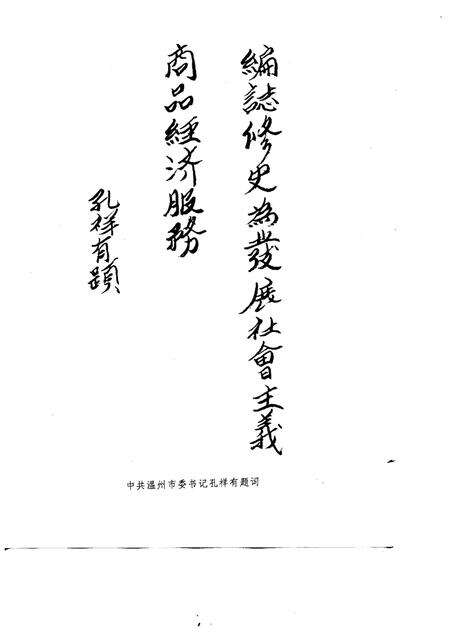 編誌修史為發展社會主義
商品經济服務
孔祥有題
中共温州市委书记孔祥有题词